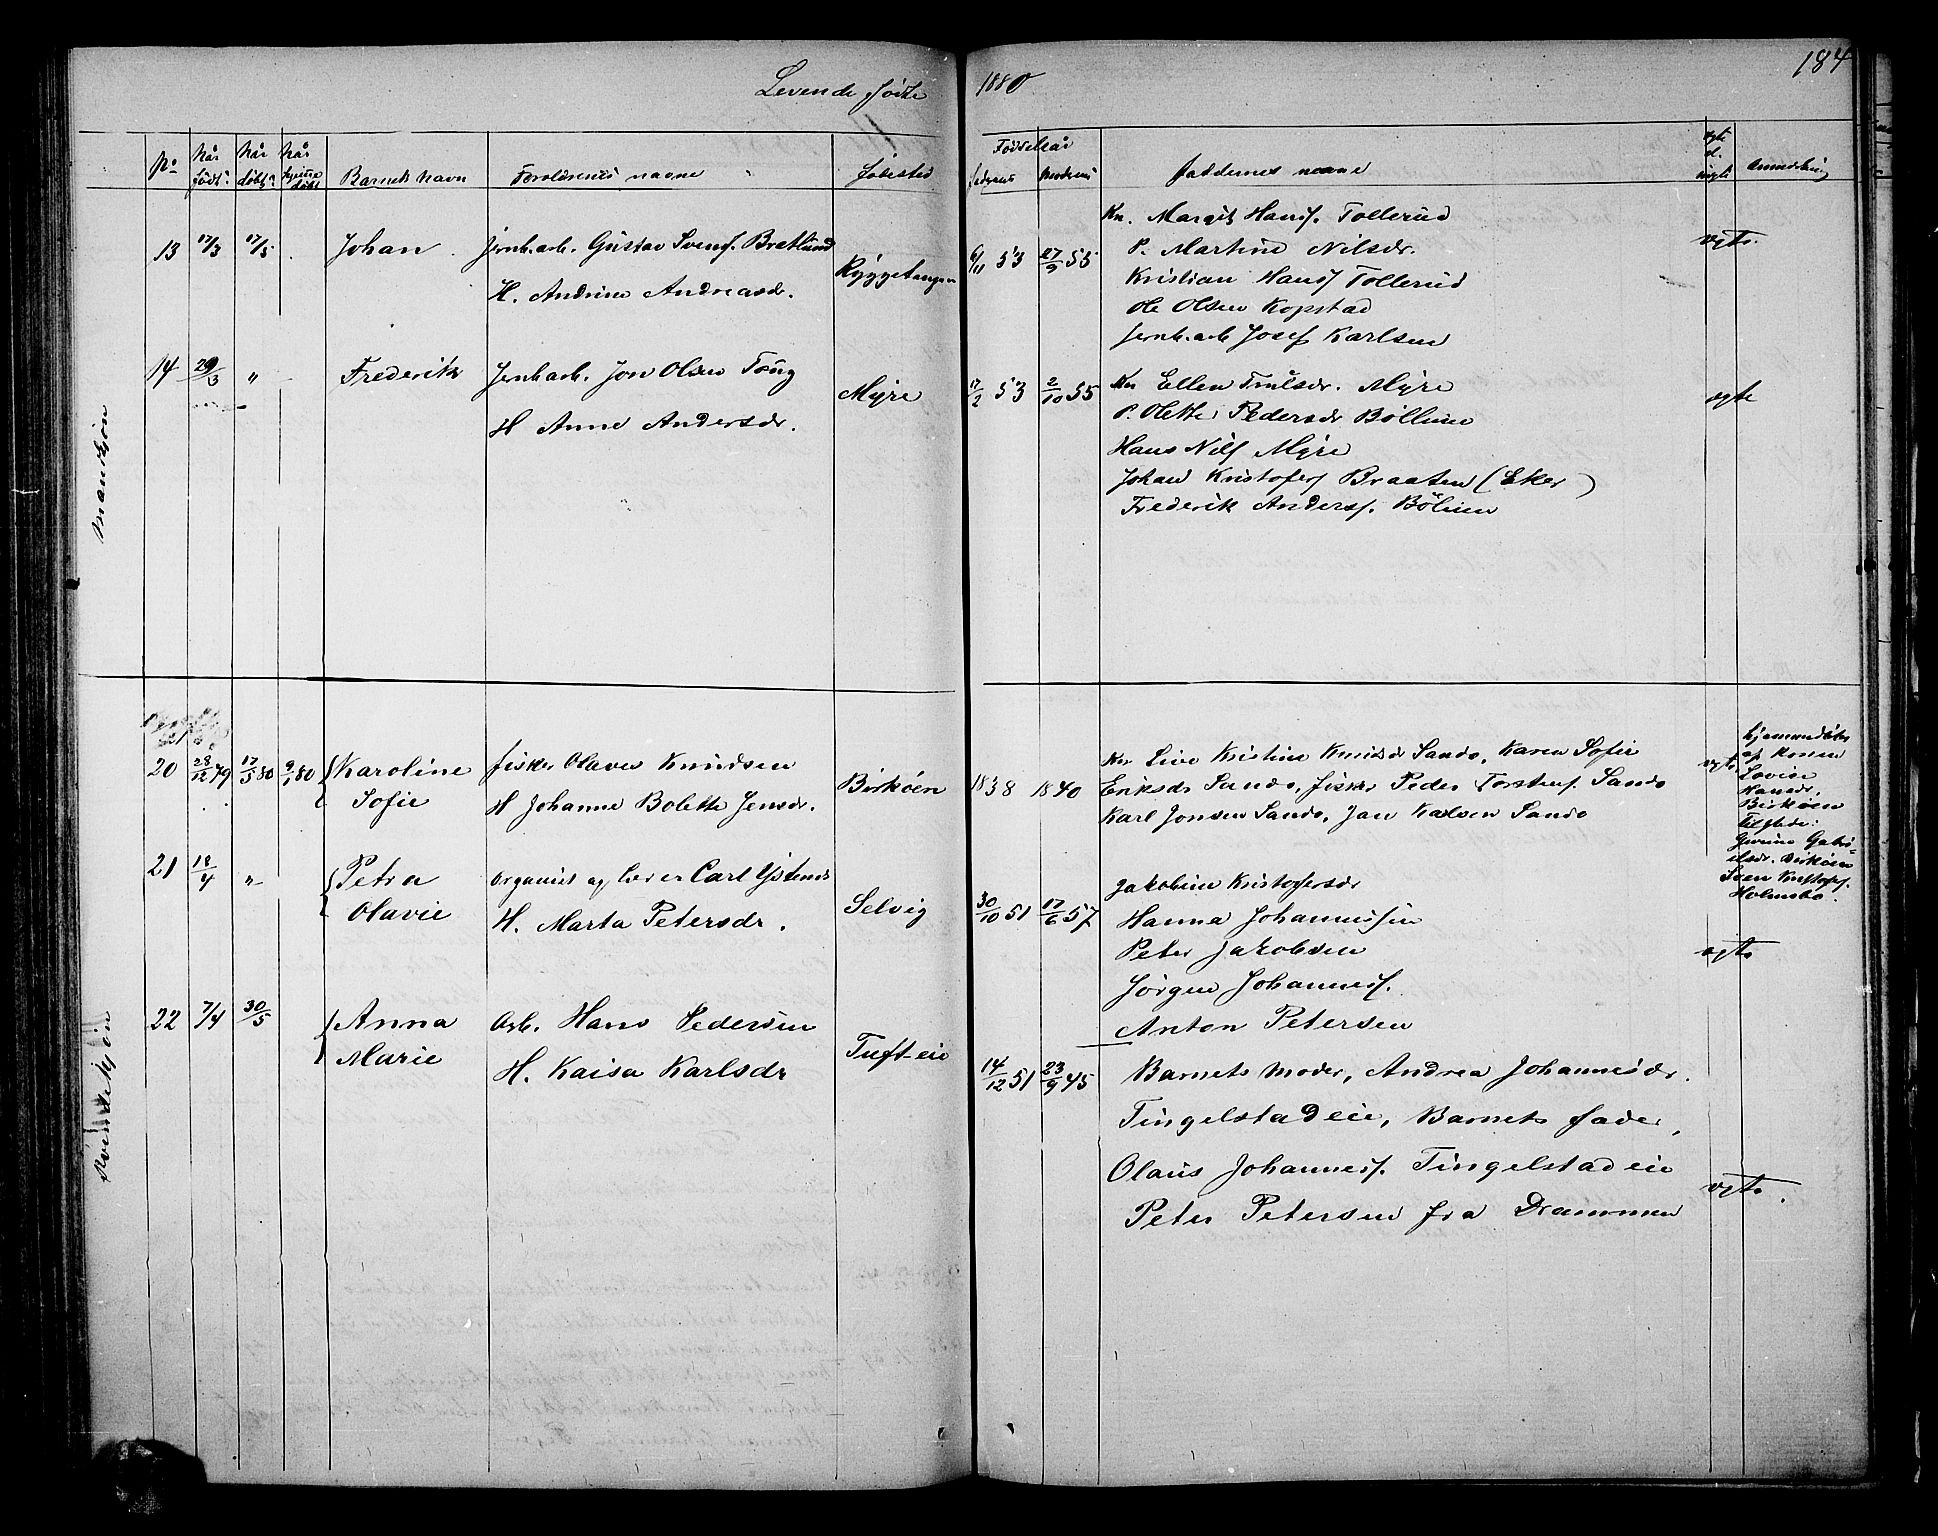 Levende fødte 1880 184
No Når født. Når døbt. Når hjemmedøbt Barnets navn Forældrenes navne Fødested
Fødselsår faderens moderens Faddernes navne vgte el. ivgte Anmerkning
Mandkjøn
13 17/3 17/5 Johan Jernb.arb. Gustav Svens. Bratlund
H. Andrine Andreasdr.
Ryggetangen
6/11 53 27/9 55
Kn. Margit Hans. Tollerud
P. Martine Nilsdr.
Kristian Hans. Tollerud
Ole Olsen Kopstad
Jernb.arb Josef Karlsen
vgte.
14 29/3 " Frederik Jernb.arb. Jon Olsen
H Anne Andersdr.
Myre
17/2 53 2/10 55
Kn Ellen Trulsdr. Myre
P. Olette Pedersdr Böllum
Hans Nils. Myre
Johan Kristofers. Braaten (Eker)
Frederik Anders.
vgte
Kvindekjøn
20 28/12 79 17/5 80 9/1 80 Karoline
Sofie
fisker Olaves Knudsen
H Johanne Bolette Jensdr.
Birköen
1838 1840
Kn Live Kristine Knudsdr Sando, Karen Sofie
Eriksdr Sando, fisker Peder Torstens. Sando
Karl Jonsen Sando, Jan Karlsen Sando
vgte
hjemmedöbt
af Konen
Lovise
Hansdr,
Birköen
Tilstede:
Gabri-
elsdr. Birköen
Sven Kristofs.
Holmsbo.
21 18/4 " Petra
Olavie
Organist og lærer Carl
H. Marta Petersdr.
Selvig
30/10 51 17/6 57
Jakobine Kristofersdr
Hanna Johannessen
Peter Jakobsen
Jörgen Johanness.
Anton Petersen
vgte
22 7/4 30/5 Anna
Marie
Arb. Hans Pedersen
H. Kaisa Karlsdr
Tuft eie
14/12 51 23/9 45
Barnets Moder, Andrea Johannesdr.
Tingelstadeie, Barnets fader,
Olaus Johanness. Tingelstadeie
Peter Petersen fra Drammen
vgte.